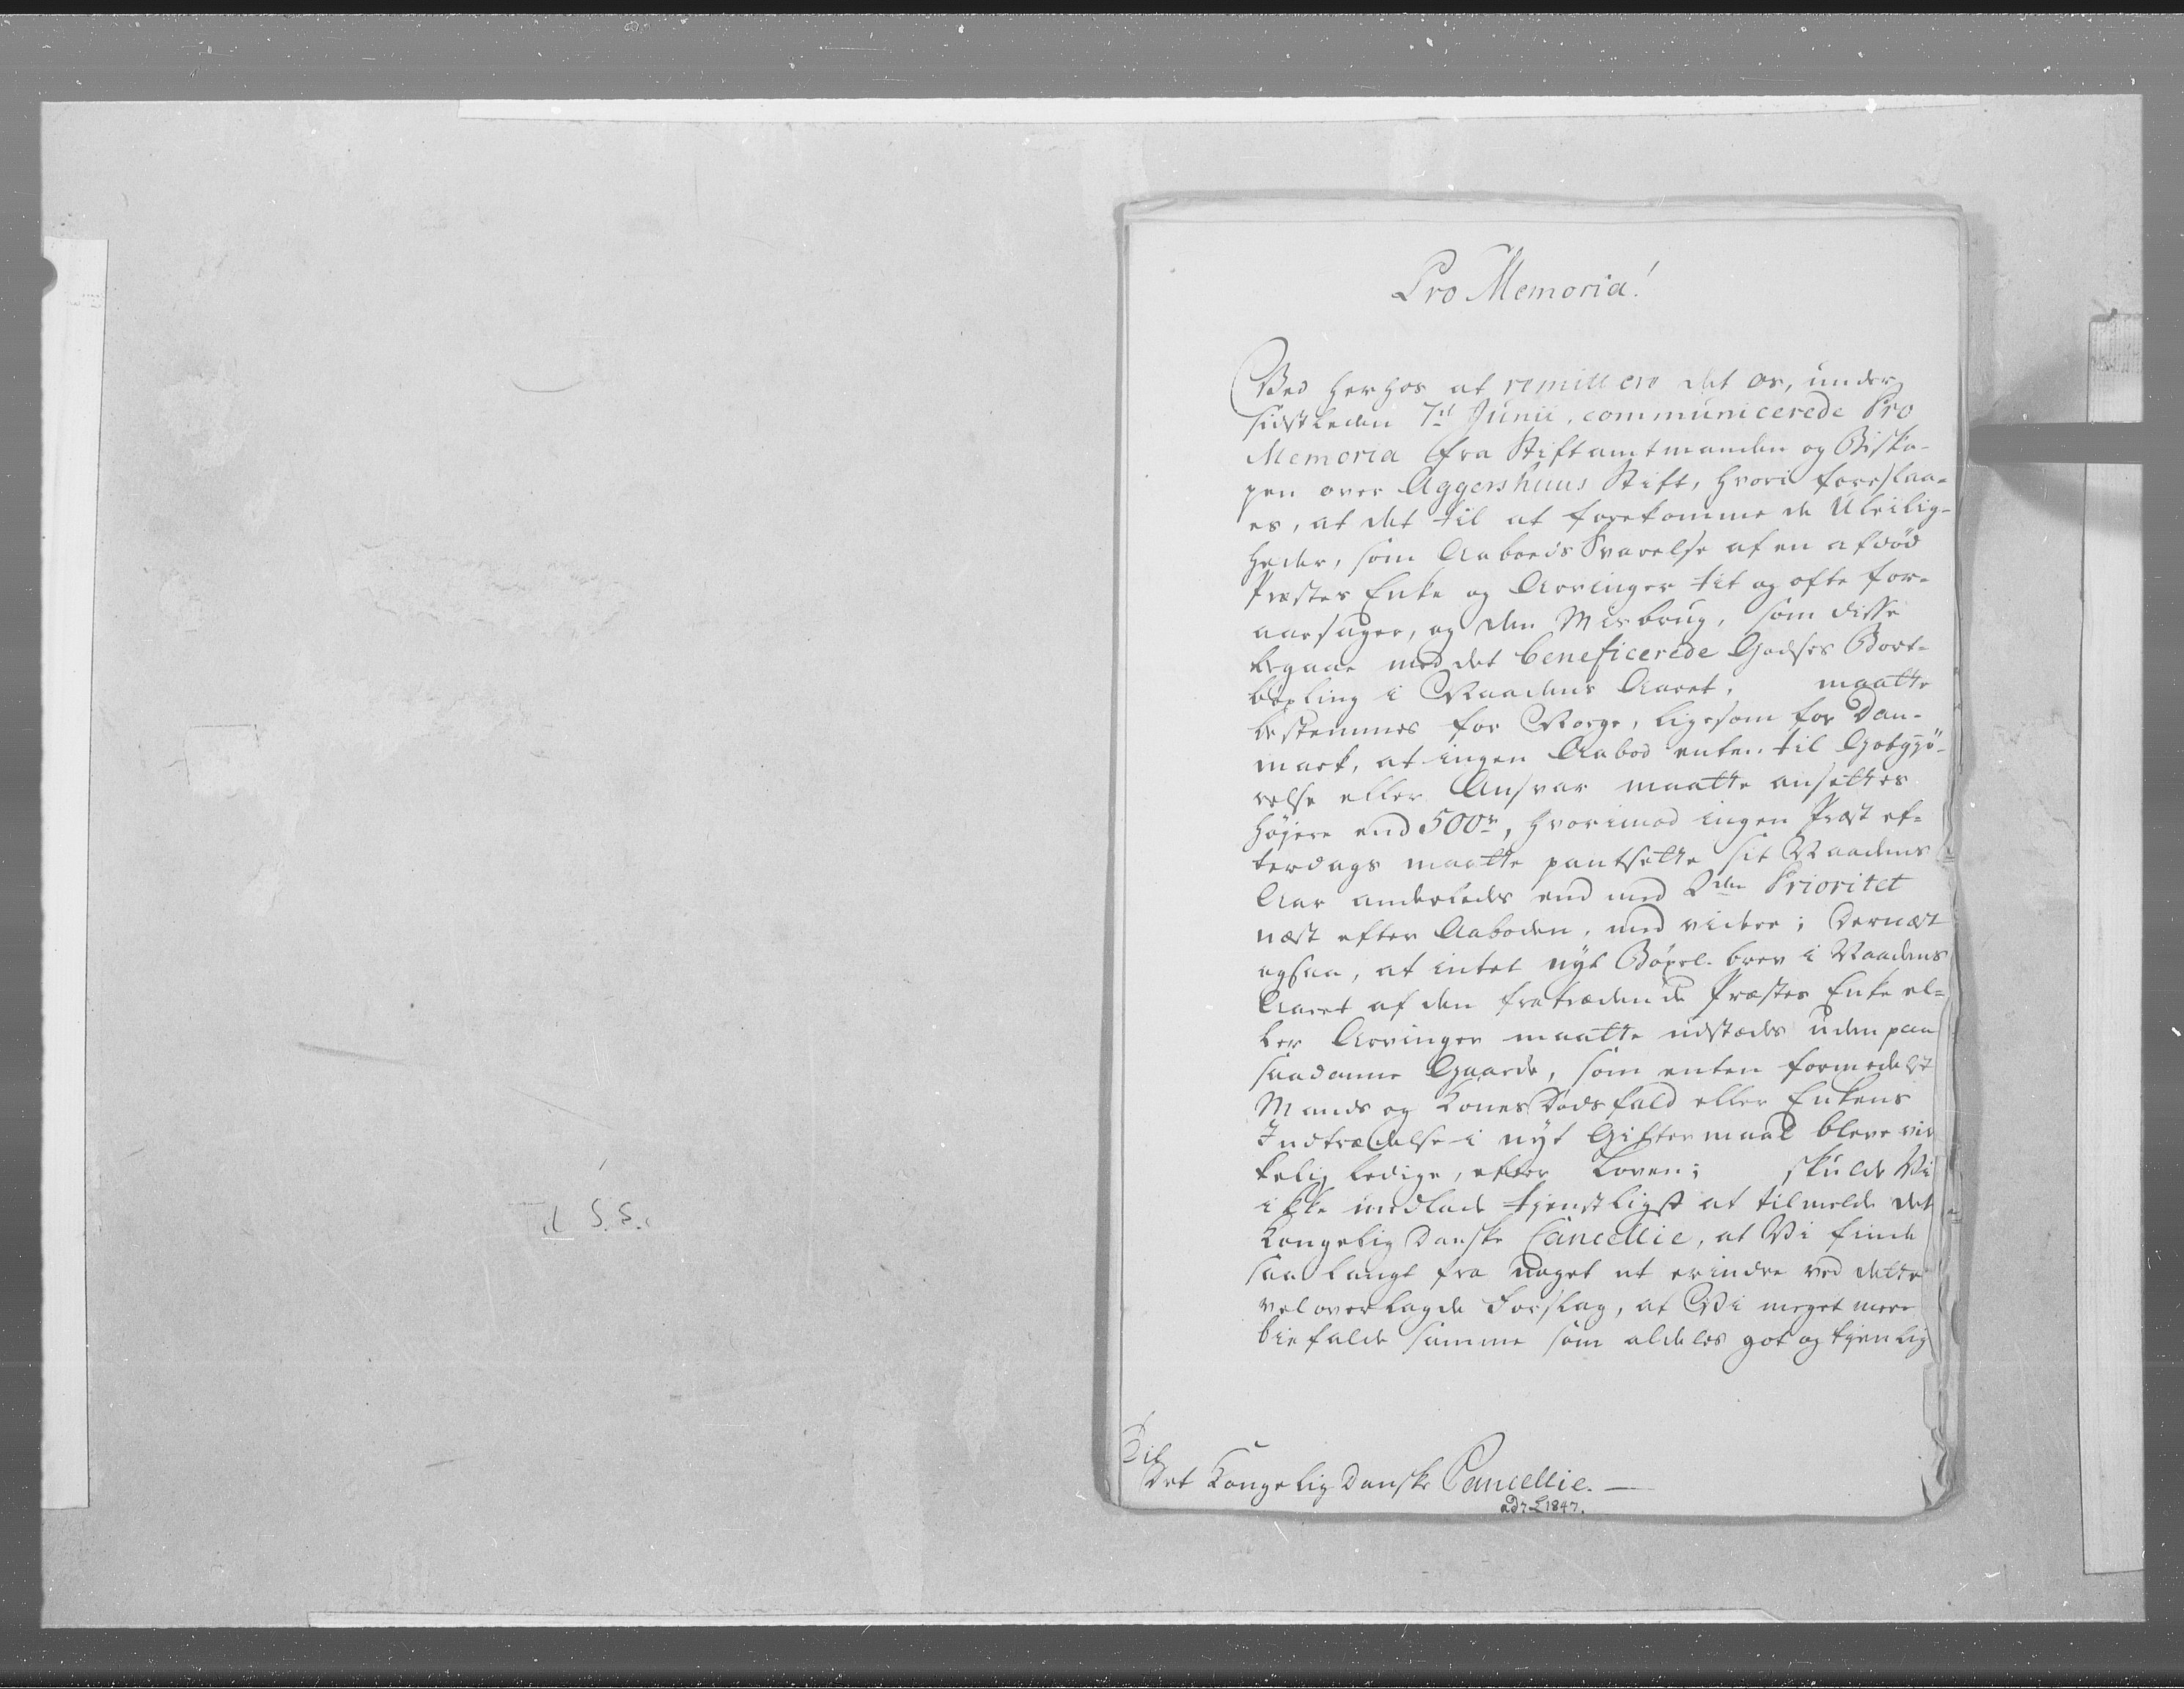 Pro Memoria!
Ved herhos at remittere det os, under
sidstleden 7d Junii, communicerede Pro
Memoria fra Stiftamtmanden og Bisko-
pen over Aggershuus Stift, hvori foreslaa-
es, at det til at forekomme de Uleilig-
heder, som Aaboeds Svarelse af en afdød
Præstes Enke og Arvinger tit og ofte for-
aarsager, og den Misbrug, som disse
begaae med det beneficerede Godses Bort-
bøxling i Naadens Aaret, maatte
bestemmes for Norge, ligesom for Dan-
mark, at ingen Aabod enten til Godtgjö-
relse eller Ansvar maatte ansettes
høiere end 500r, hvorimod ingen Præst ef-
terdags maatte pantsette sit Naadens
Aar anderledes end med 2den Prioritet
næst efter Aaboden, med videre; dernæst
ogsaa, at intet nyt Böxel-brev i Naadens
Aaret af den fratrædende Præstes Enke el-
ler Arvinger maatte udstædes uden paa
saadanne Gaarde, som enten formedelst
Mands og Kones Dødsfald eller Enkens
Indtrædelse i nyt Giftermaal bleve vir
kelig ledige, efter Loven; skulde Vi
ikke undlade tjenstligst at tilmelde det
Kongelig Danske Cancellie, at Vi finde
saa langt fra noget at erindre ved dette
vel overlagde Forslag, at Vi meget mere
biefalde samme som aldeles got og tjenlig
Til
Det Kongelig Danske Cancellie. —
ad 7 L 1847.
Til S. S.